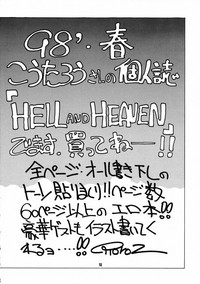 98'・春
こうたろうさんの個人誌
『HELL AND HEAVEN』
でます 買ってねー!!
全ページ オール書き下しの
トーン貼りまくり!!ページ数
60ページ以上のエロ本!!
豪華ゲストもイラスト書いてく
れるョ…!!